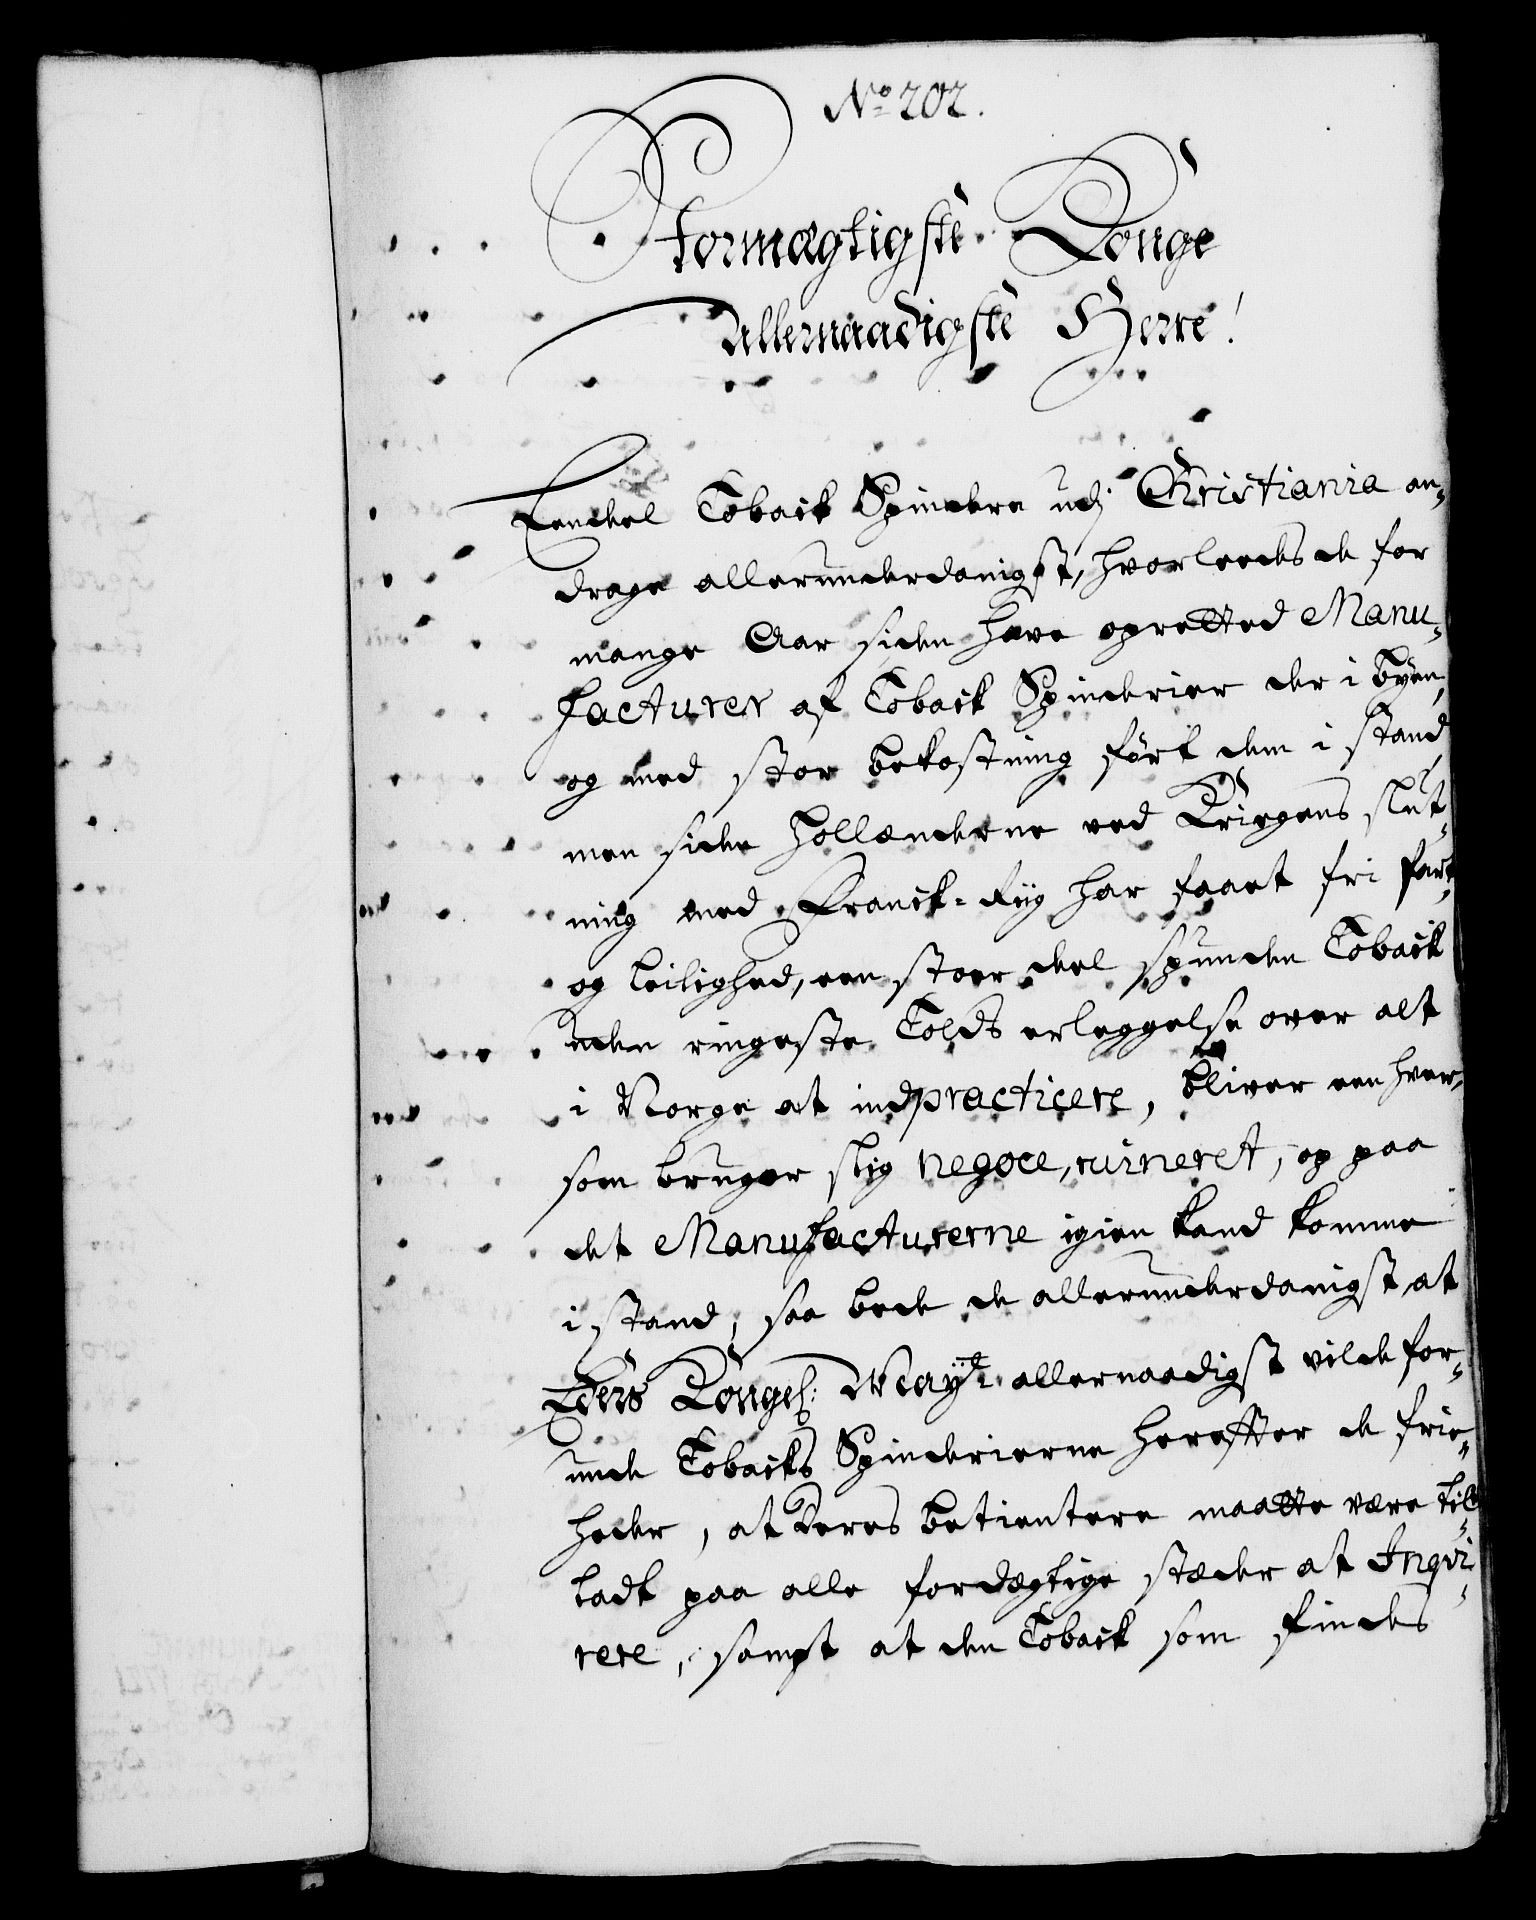 No 202.
Stormægtigste Konge
Allernaadigste Herre!
Eendeel Toback Spindere udj Christiania an-
drage allerunderdanigst, hvorleedes de for
mange Aar siden have opretted Manu-
facturer af Toback Spinderier der i Byen,
og med stor bekostning ført dem i stand,
men siden Hollænderne ved Kriegens slut-
ning med Franck-Riig har faaet fri fart
og leilighed, een stoer deel spunden Toback
uden ringeste Tolds erleggelse over alt
i Norge at indpracticere, bliver een hver,
som bruger slig negoce, ruineret, og paa
det Manufacturerne igien kand komme
i stand, saa bede de allerunderdanigst, at
Eders Kongel: Mayt. allernaadigst vilde for-
unde Tobacks Spinderierne herefter de frie-
heder, at deres betientere maatte være til-
ladt paa alle fordægtige stæder at Inqvi-
rere, sampt at den Toback som findes